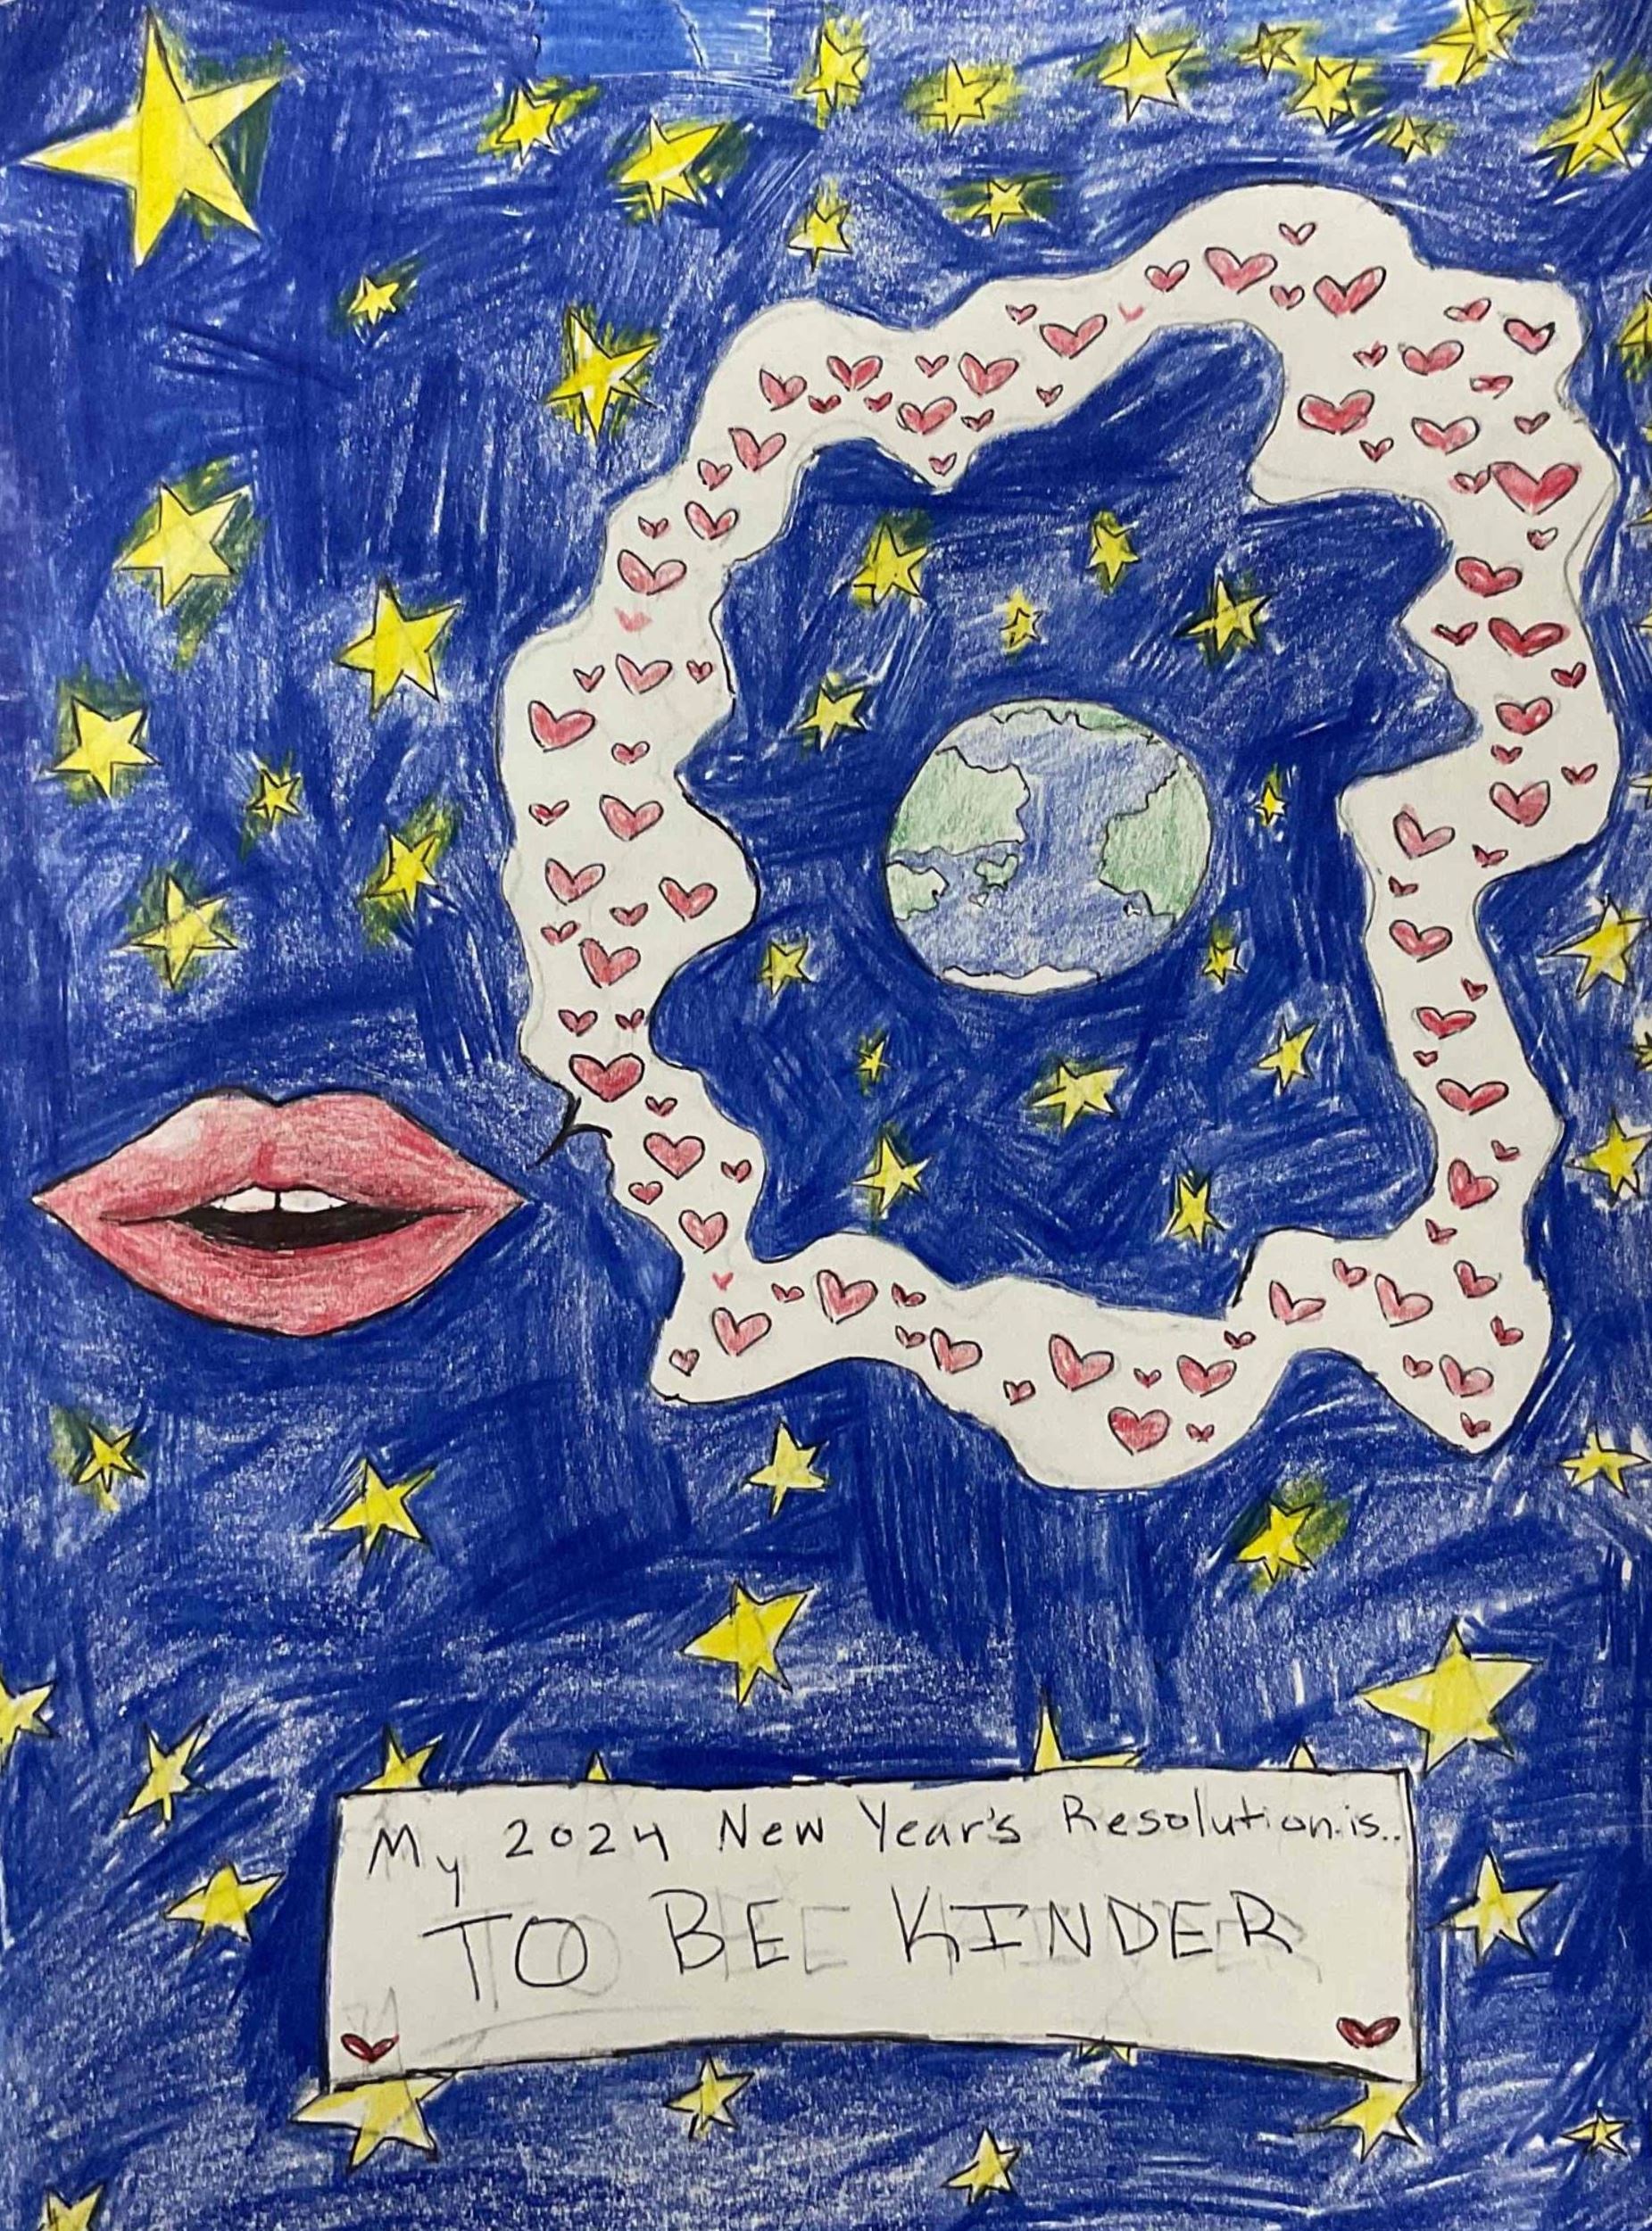 My 2024 New Year's Resolution is..
TO BE KINDER